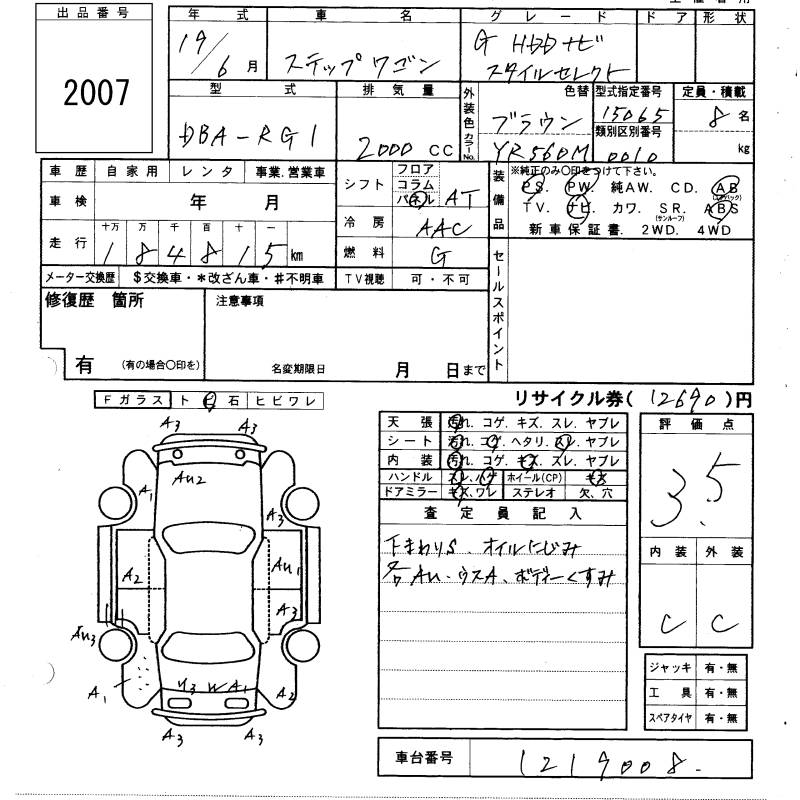 出品番号
2007
年式
車名
グレード
ドア
形状
19/6月
ステップワゴン
G HDDナビ
スタイルセレクト
型式
排気量
外装色
色替
カラーNo.
型式指定番号
定員・積載
DBA-RG1
2000 CC
ブラウン
15065
8名
類別区別番号
YR560M
0010
kg
車歴 自家用 レンタ 事業.営業車
シフト
フロア
コラム
パネル
AT
装備品
※純正のみ〇印をつけて下さい。
PS. PW. 純AW. CD. AB
(エアバック)
車検 年 月
冷房 AAC
TV. ナビ. カワ. SR. ABS
(サンルーフ)
新車保証書. 2WD. 4WD
走行
十万 万 千 百 十 一
184815km
燃料 G
メーター交換歴 $交換車・*改ざん車・♯不明車
TV視聴 可・不可
セールスポイント
修復歴 箇所
注意事項
有 (有の場合〇印を)
名変期限日 月 日まで
リサイクル券(12690)円
Fガラス ト ビ 石 ヒビワレ
A3 A3
AU2
A1
A3
A2
AU1
A3
AU3
A1
U3 W A1
A2
A3 A3
天張 汚れ. コゲ. キズ. スレ. ヤブレ
シート 汚れ. コゲ. ヘタリ. スレ. ヤブレ
内装 汚れ. コゲ. キズ. スレ. ヤブレ
ハンドル スレ、ハゲ ホイール(CP) キズ
ドアミラー キズ、ワレ ステレオ 欠、穴
査定員記入
下まわりS. オイルにじみ
各AU・ウスA、ボディーくすみ
評価点
3.5
内装 外装
C C
ジャッキ 有・無
工具 有・無
スペアタイヤ 有・無
車台番号 1219008.